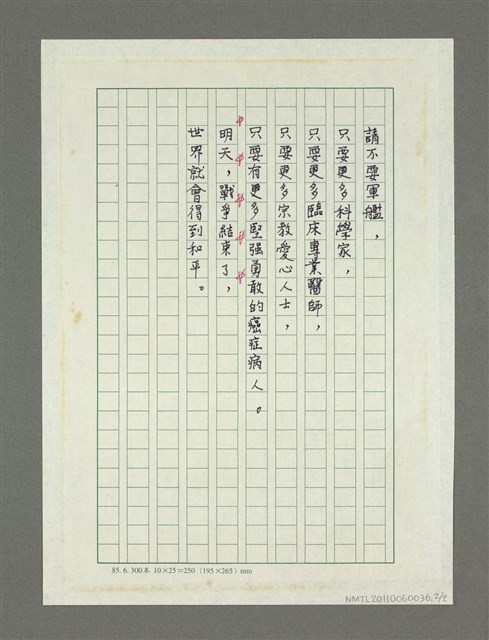 請不要軍艦，
只要更多科學家，
只要更多臨床專業醫師，
只要更多宗教愛心人士，
只要有更多堅强勇敢的癌症病人。
明天，戰爭結束了，
世界就會得到和平。
85. 6. 300本 10×25=250 (195×265) mm
NMTL20110060036.2/2